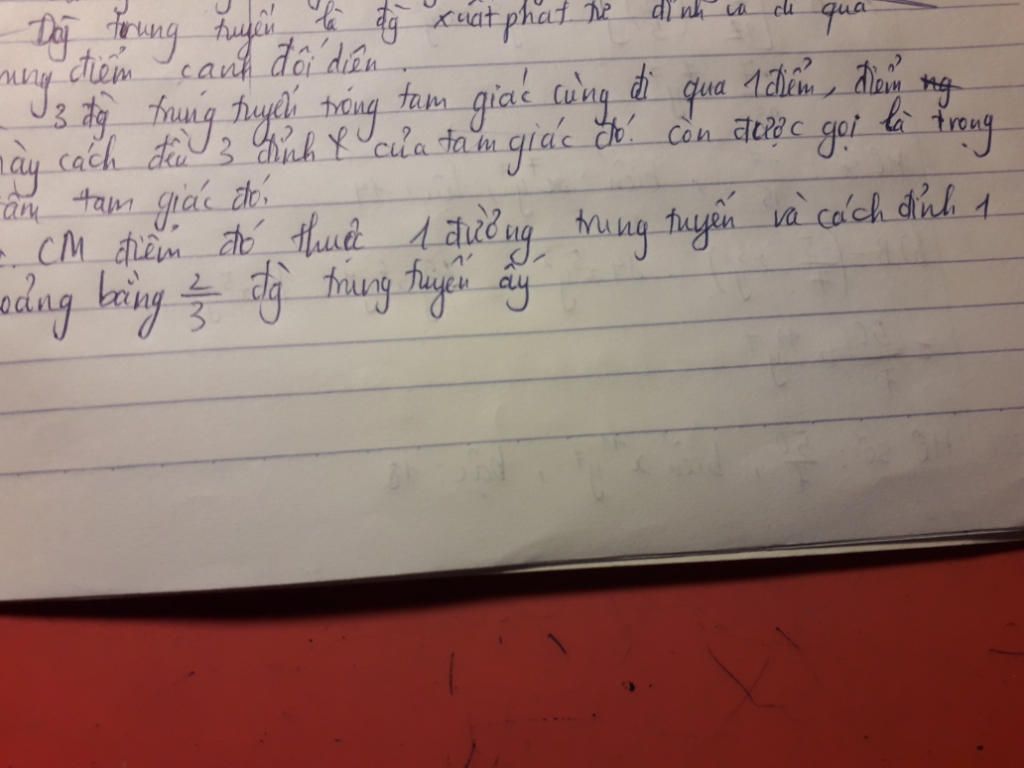 Dg̀ trung tuyến là đg̀ xuất phát từ đỉnh và đi qua
rung điểm cạnh đối diện.
3 đg̀ trung tuyến trong tam giác cùng đi qua 1 điểm, điểm
này cách đều 3 đỉnh của tam giác đó. còn được gọi là trọng
âm tam giác đó.
CM điểm đó thuộc 1 đường trung tuyến và cách đỉnh 1
oảng bằng 2/3 đg̀ trung tuyến ấy